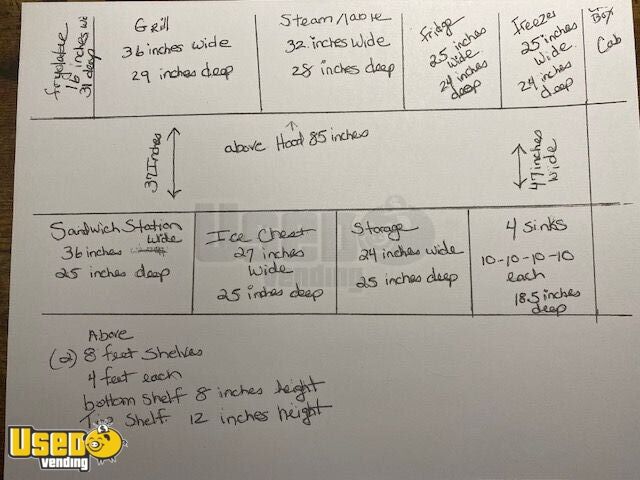 fryolator
16 inches wi
31 deep
Grill
36 inches wide
29 inches deep
Steam Table
32 inches wide
28 inches deep
Fridge
25 inches
wide
24 inches
deep
Freezer
25 inches
wide
24 inches
deep
Box
Cab
37 Inches
above Hood 85 inches
47 inches
wide
Sandwich Station
36 inches wide
25 inches deep
Ice Chest
27 inches
wide
25 inches deep
Storage
24 inches wide
25 inches deep
4 sinks
10-10-10-10
each
18.5 inches
deep
USED
vending
Above
(2) 8 feet shelves
4 feet each
bottom shelf 8 inches height
Top Shelf 12 inches height
USED
vending